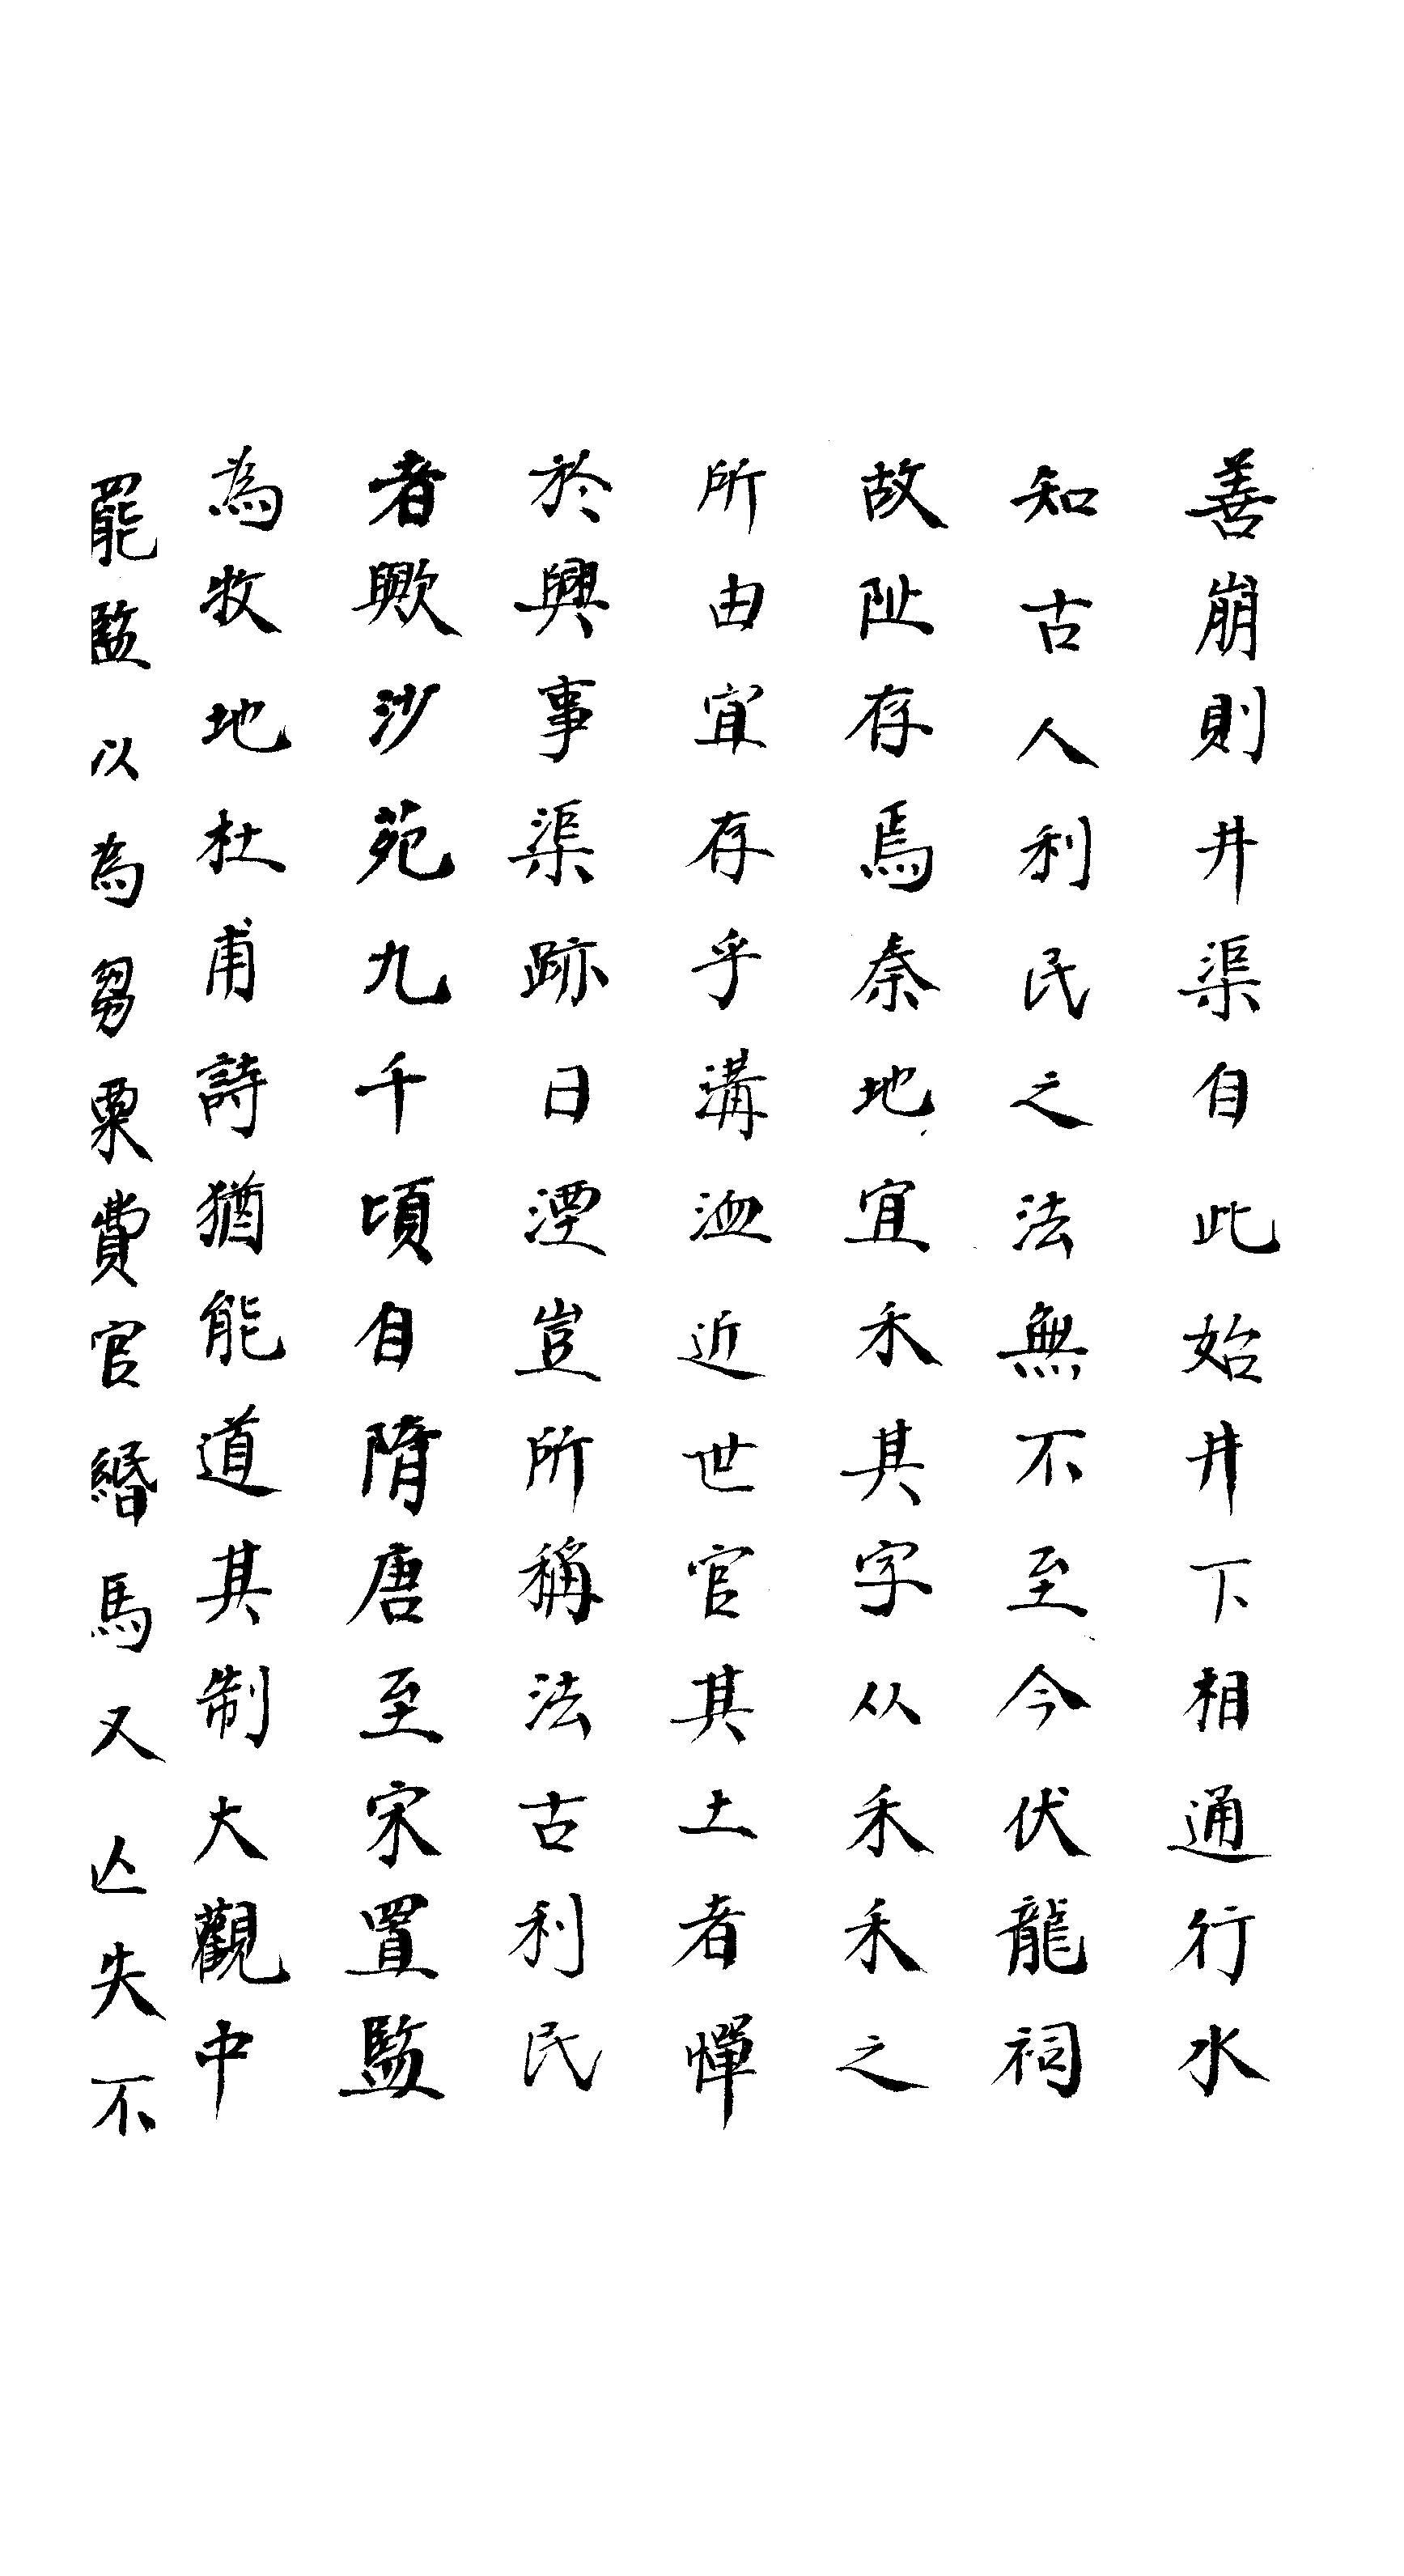 善崩則井渠自此始井下相通行水
知古人利民之法無不至今伏龍祠
故阯存焉秦地宜禾其字从禾禾之
所由宜存乎溝洫近世官其土者憚
於興事渠跡日湮豈所稱法古利民
者歟沙苑九千頃自隋唐至宋置監
為牧地杜甫詩猶能道其制大觀中
罷監以為芻粟費官緡馬又亾失不